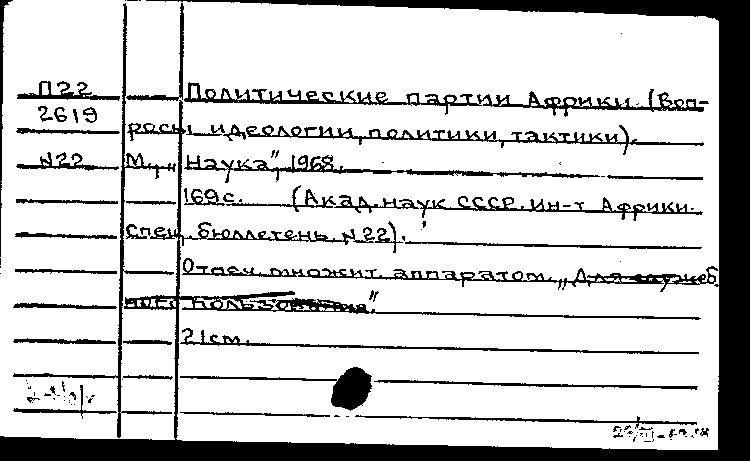 П22 Политические партии Африки. (Воп-
2619 росы идеологии, политики, тактики).
N22 М., „Наука”, 1968.
169с. (Акад. наук СССР. Ин-т Африки.
Спец. бюллетень N22).
Отпеч. множит. аппаратом. „Для служеб
ного пользования”
21см.